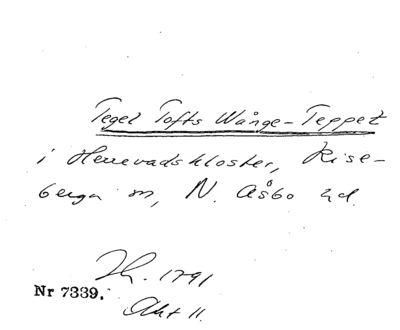 Tegel Tofts Wånge-Teppet
i Herrevadskloster, Rise-
berga sn, N. Åsbo hd.
Th. 1791
Nr 7339.
Akt 11.